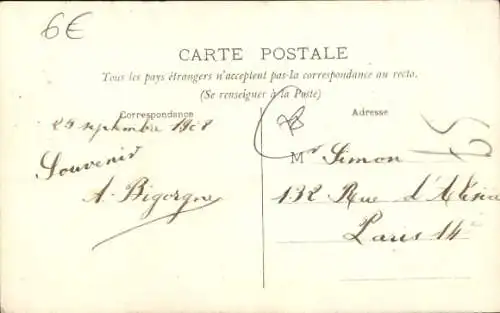 6€
CARTE POSTALE
Tous les pays étrangers n'acceptent pas la correspondance au recto.
(Se renseigner à la Poste)
Correspondance
Adresse
25 septembre 1908
Souvenir
A. Bigorgne
Mr Simon
132 Rue d'Alésia
Paris 14e